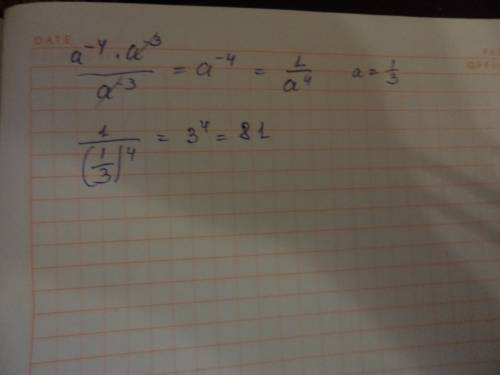 DATE
a⁻⁴ · a⁻³ / a⁻³ = a⁻⁴ = 1/a⁴ a = 1/3
1/(1/3)⁴ = 3⁴ = 81